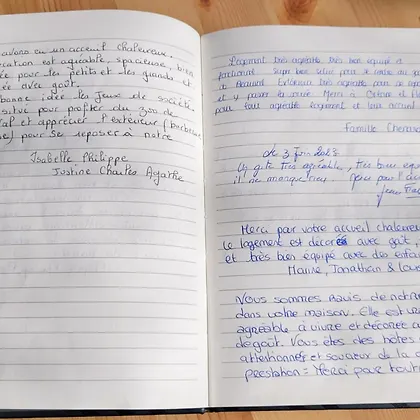 avons eu un acceuil chaleureux,
cation est agréable, spacieuse, bien
ée pour les petits et les grands et
ée avec goût.
bonne idée les jeux de société
situé pour profiter du zoo de
al et apprécier l'extérieur (barbecue
e) pour se reposer à notre
Isabelle Philippe
Justine Charles Agathe
Logement très agréable, très bien équipé et
fonctionnel. Super bon séjour pour
à Beauval. Extérieur très agréable pour se
et y passer la soirée. Merci à
pour leur agréable logement et leur accueil
Famille
de 3 Juin 2023
Un gîte très agréable, très bien équ
il ne manque rien. pour l'ac
Merci pour votre accueil chaleureux
Le logement est décoré avec goût,
et très bien equipé avec des enfa
Marine, Jonathan & Lou
Nous sommes Ravis de notre
dans votre maison. Elle est un
agréable à vivre et décorée a
de goût. Vous êtes des hôtes
attentionnés et soucieux de la
prestation = Merci pour tout